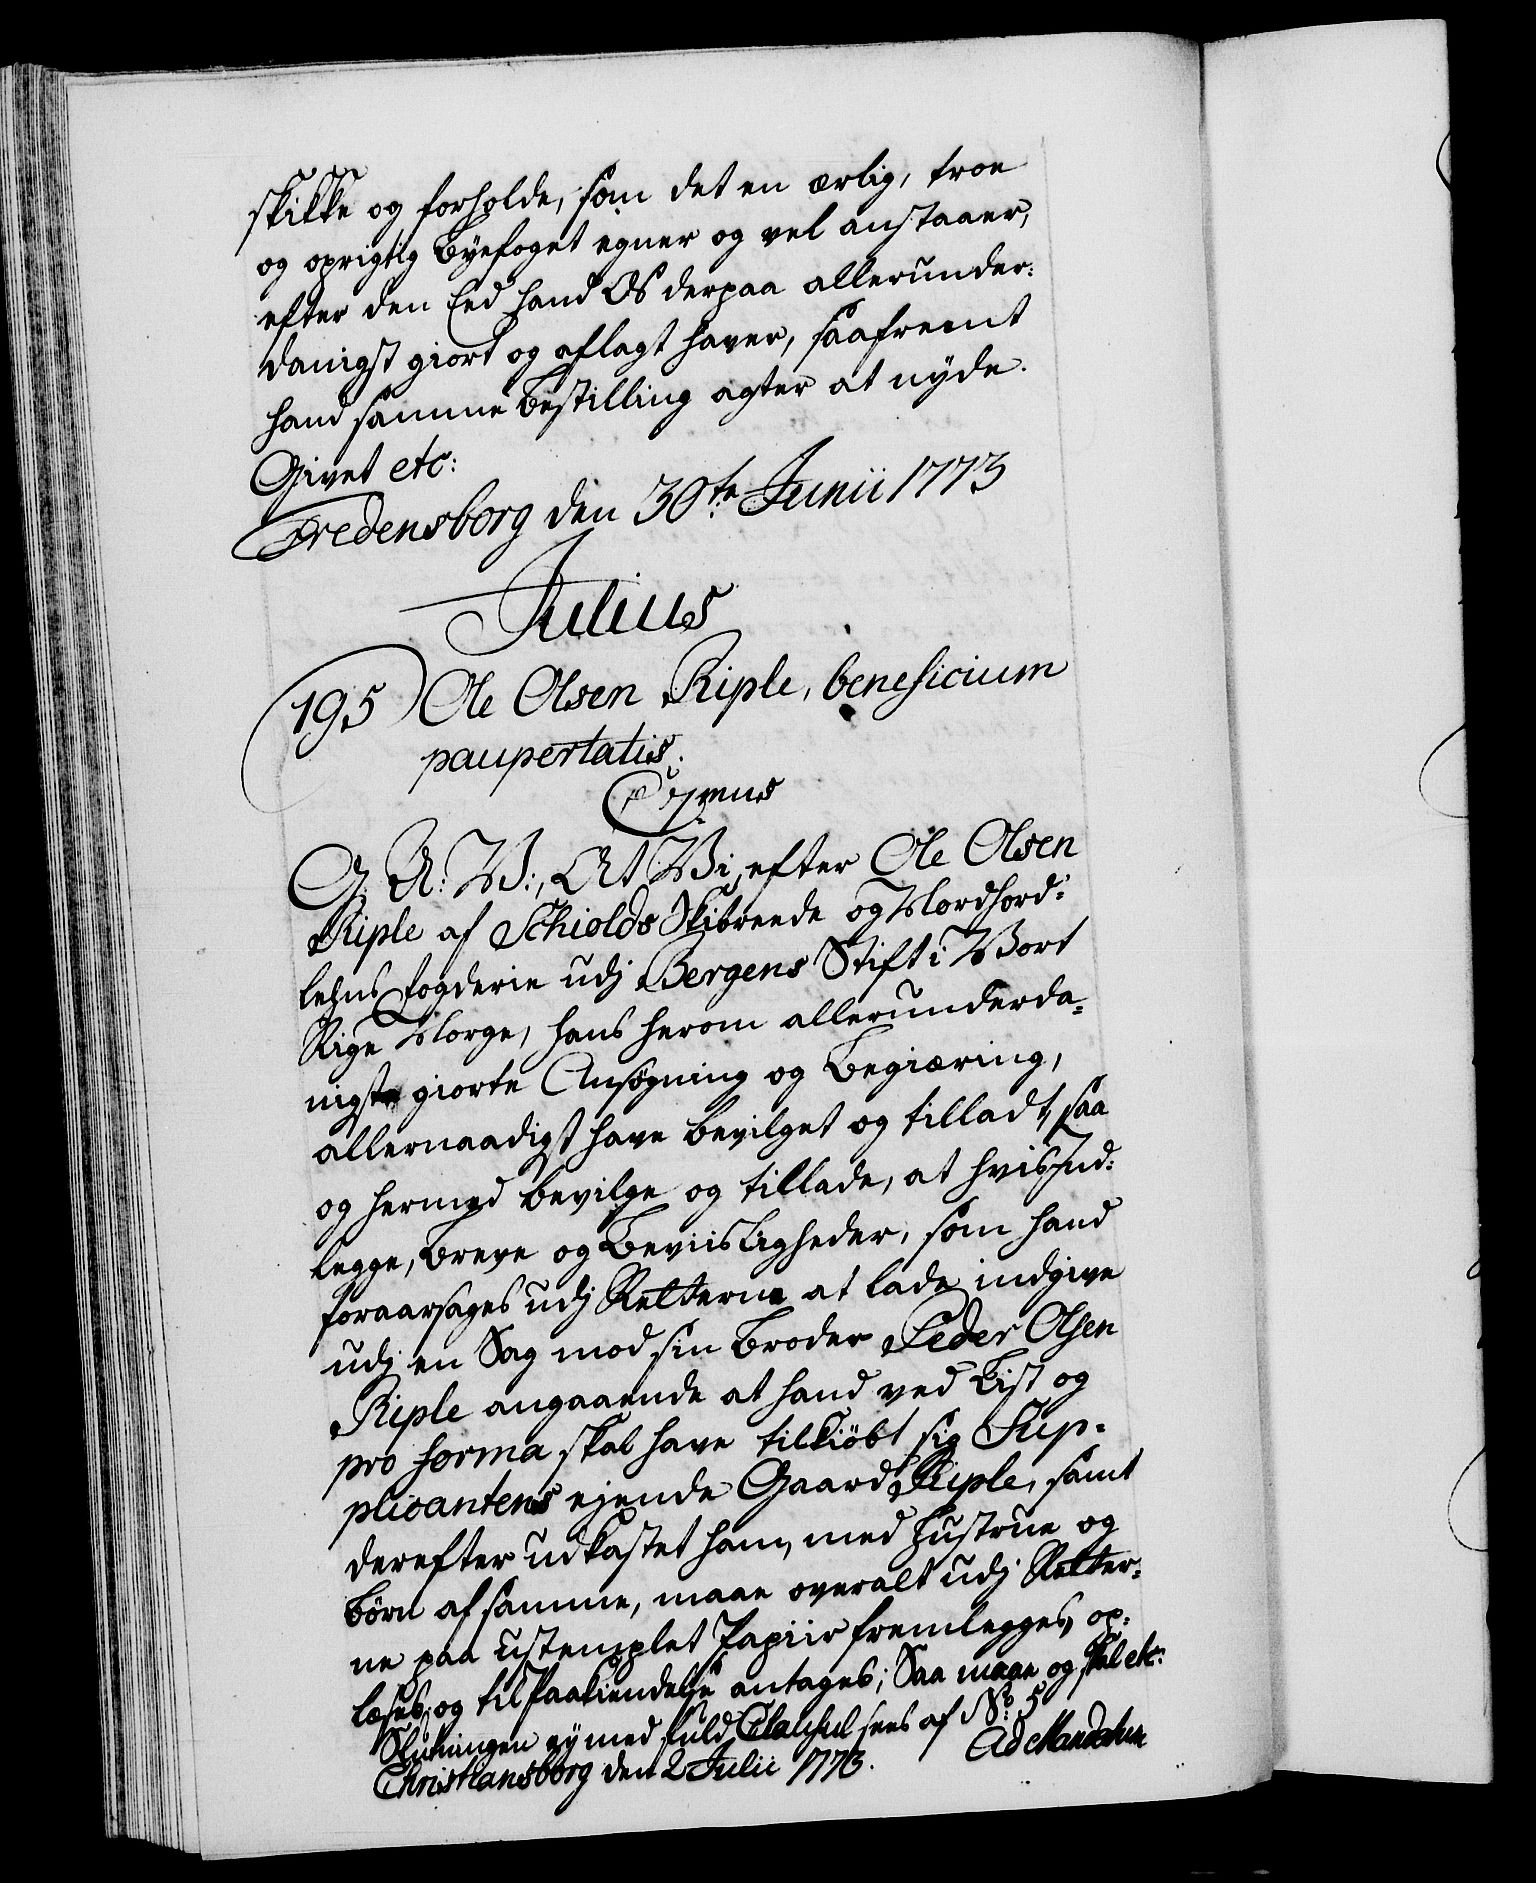 skikke og forholde, som det en ærlig, troe
og oprigtig Byefoget egner og vel anstaaer,
efter den Eed hand Os derpaa allerunder-
danigst giort og aflagt haver, saafremt
hand samme Bestilling agter at nyde.
Givet etc:
Fredensborg den 30te Junii 1773
Julius
195) Ole Olsen Riple, beneficium
paupertatis.
G: A: V:, At Vi, efter Ole Olsen
Riple af Schiolds Skibreede og Nordhord-
lehns Fogderie udj Bergens Stift i Vort
Rige Norge, hans herom allerunderda-
nigste giorte Ansøgning og Begiæring,
allernaadigst have bevilget og tilladt, saa
og hermed bevilge og tillade, at hvis Ind-
legge, Breve og Beviisligheder, som hand
foraarsages udj Retterne at lade indgive
udj en Sag mod sin Broder Peder Olsen
Riple angaaende at hand ved List og
pro forma skal have tilkiøbt sig Sup-
plicantens ejende Gaard Riple, samt
derefter udkastet ham, med Hustrue og
Børn af samme, maae overalt udj Retter-
ne paa ustemplet Papiir fremlegges, op-
læses, og til Paakiendelse antages; Saa maae og skal etc:
Slutningen ey med fuld Clausul sees af No: 5
Christiansborg den 2 Julii 1773. Ad Mandatum